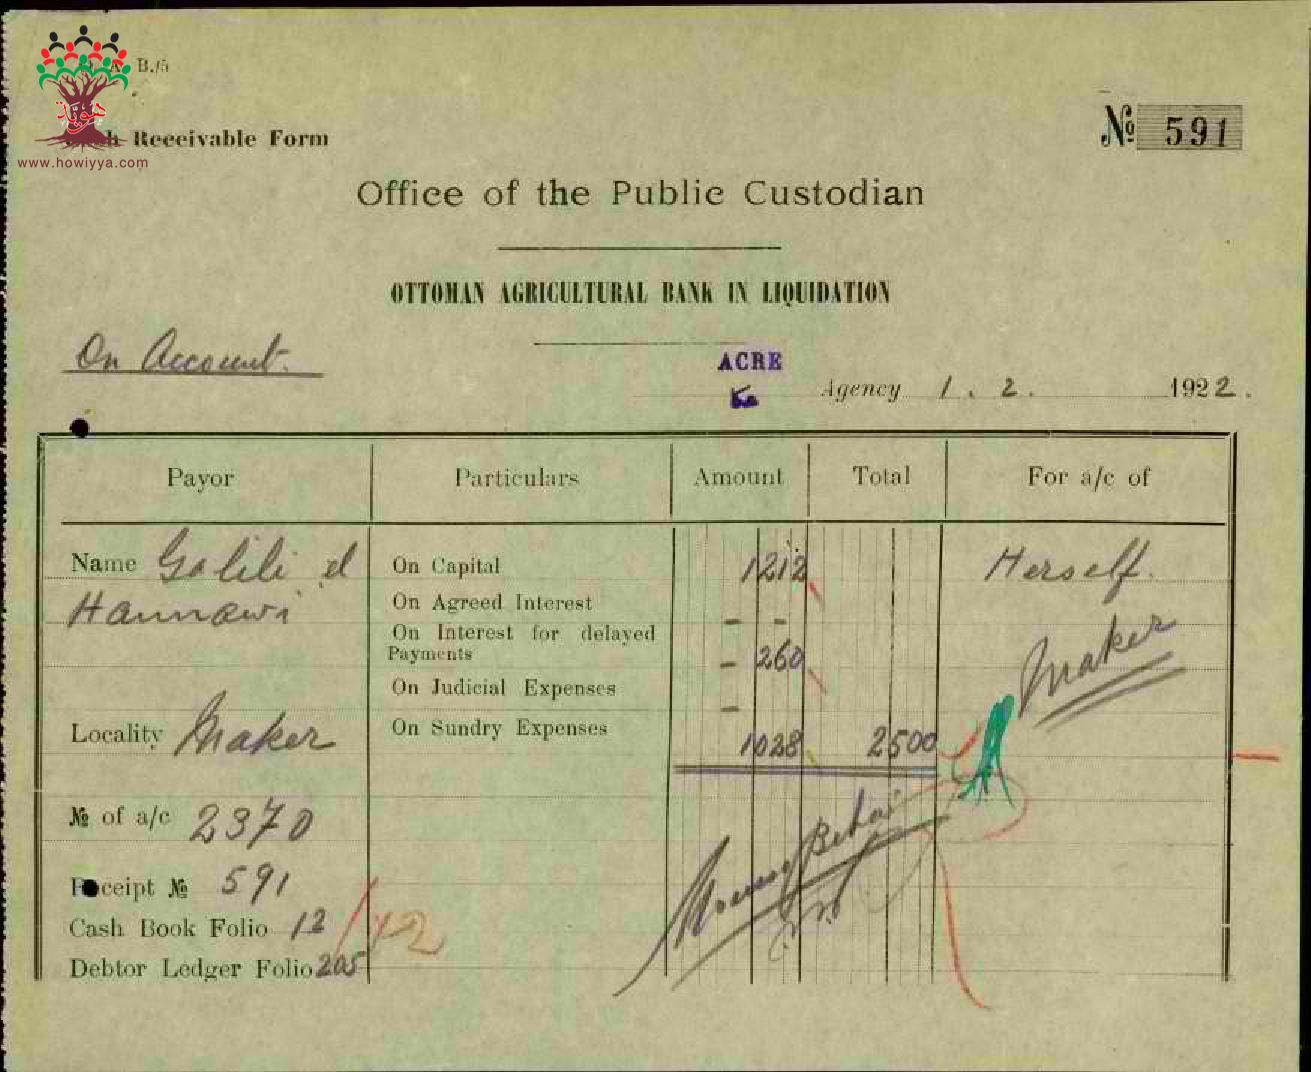 A. B./5
هوية
www.howiyya.com
Receivable Form
№ 591
Office of the Public Custodian
OTTOMAN AGRICULTURAL BANK IN LIQUIDATION
On Account.
ACRE
Agency 1 . 2 . 1922.
Payor Particulars Amount Total For a/c of
Name Galili el On Capital 1212 Herself.
Hannawi On Agreed Interest - -
On Interest for delayed
Payments - 260 Maker
On Judicial Expenses -
Locality Maker On Sundry Expenses 1028 2500
№ of a/c 2370
Receipt № 591
Cash Book Folio 12 / 42
Debtor Ledger Folio 205